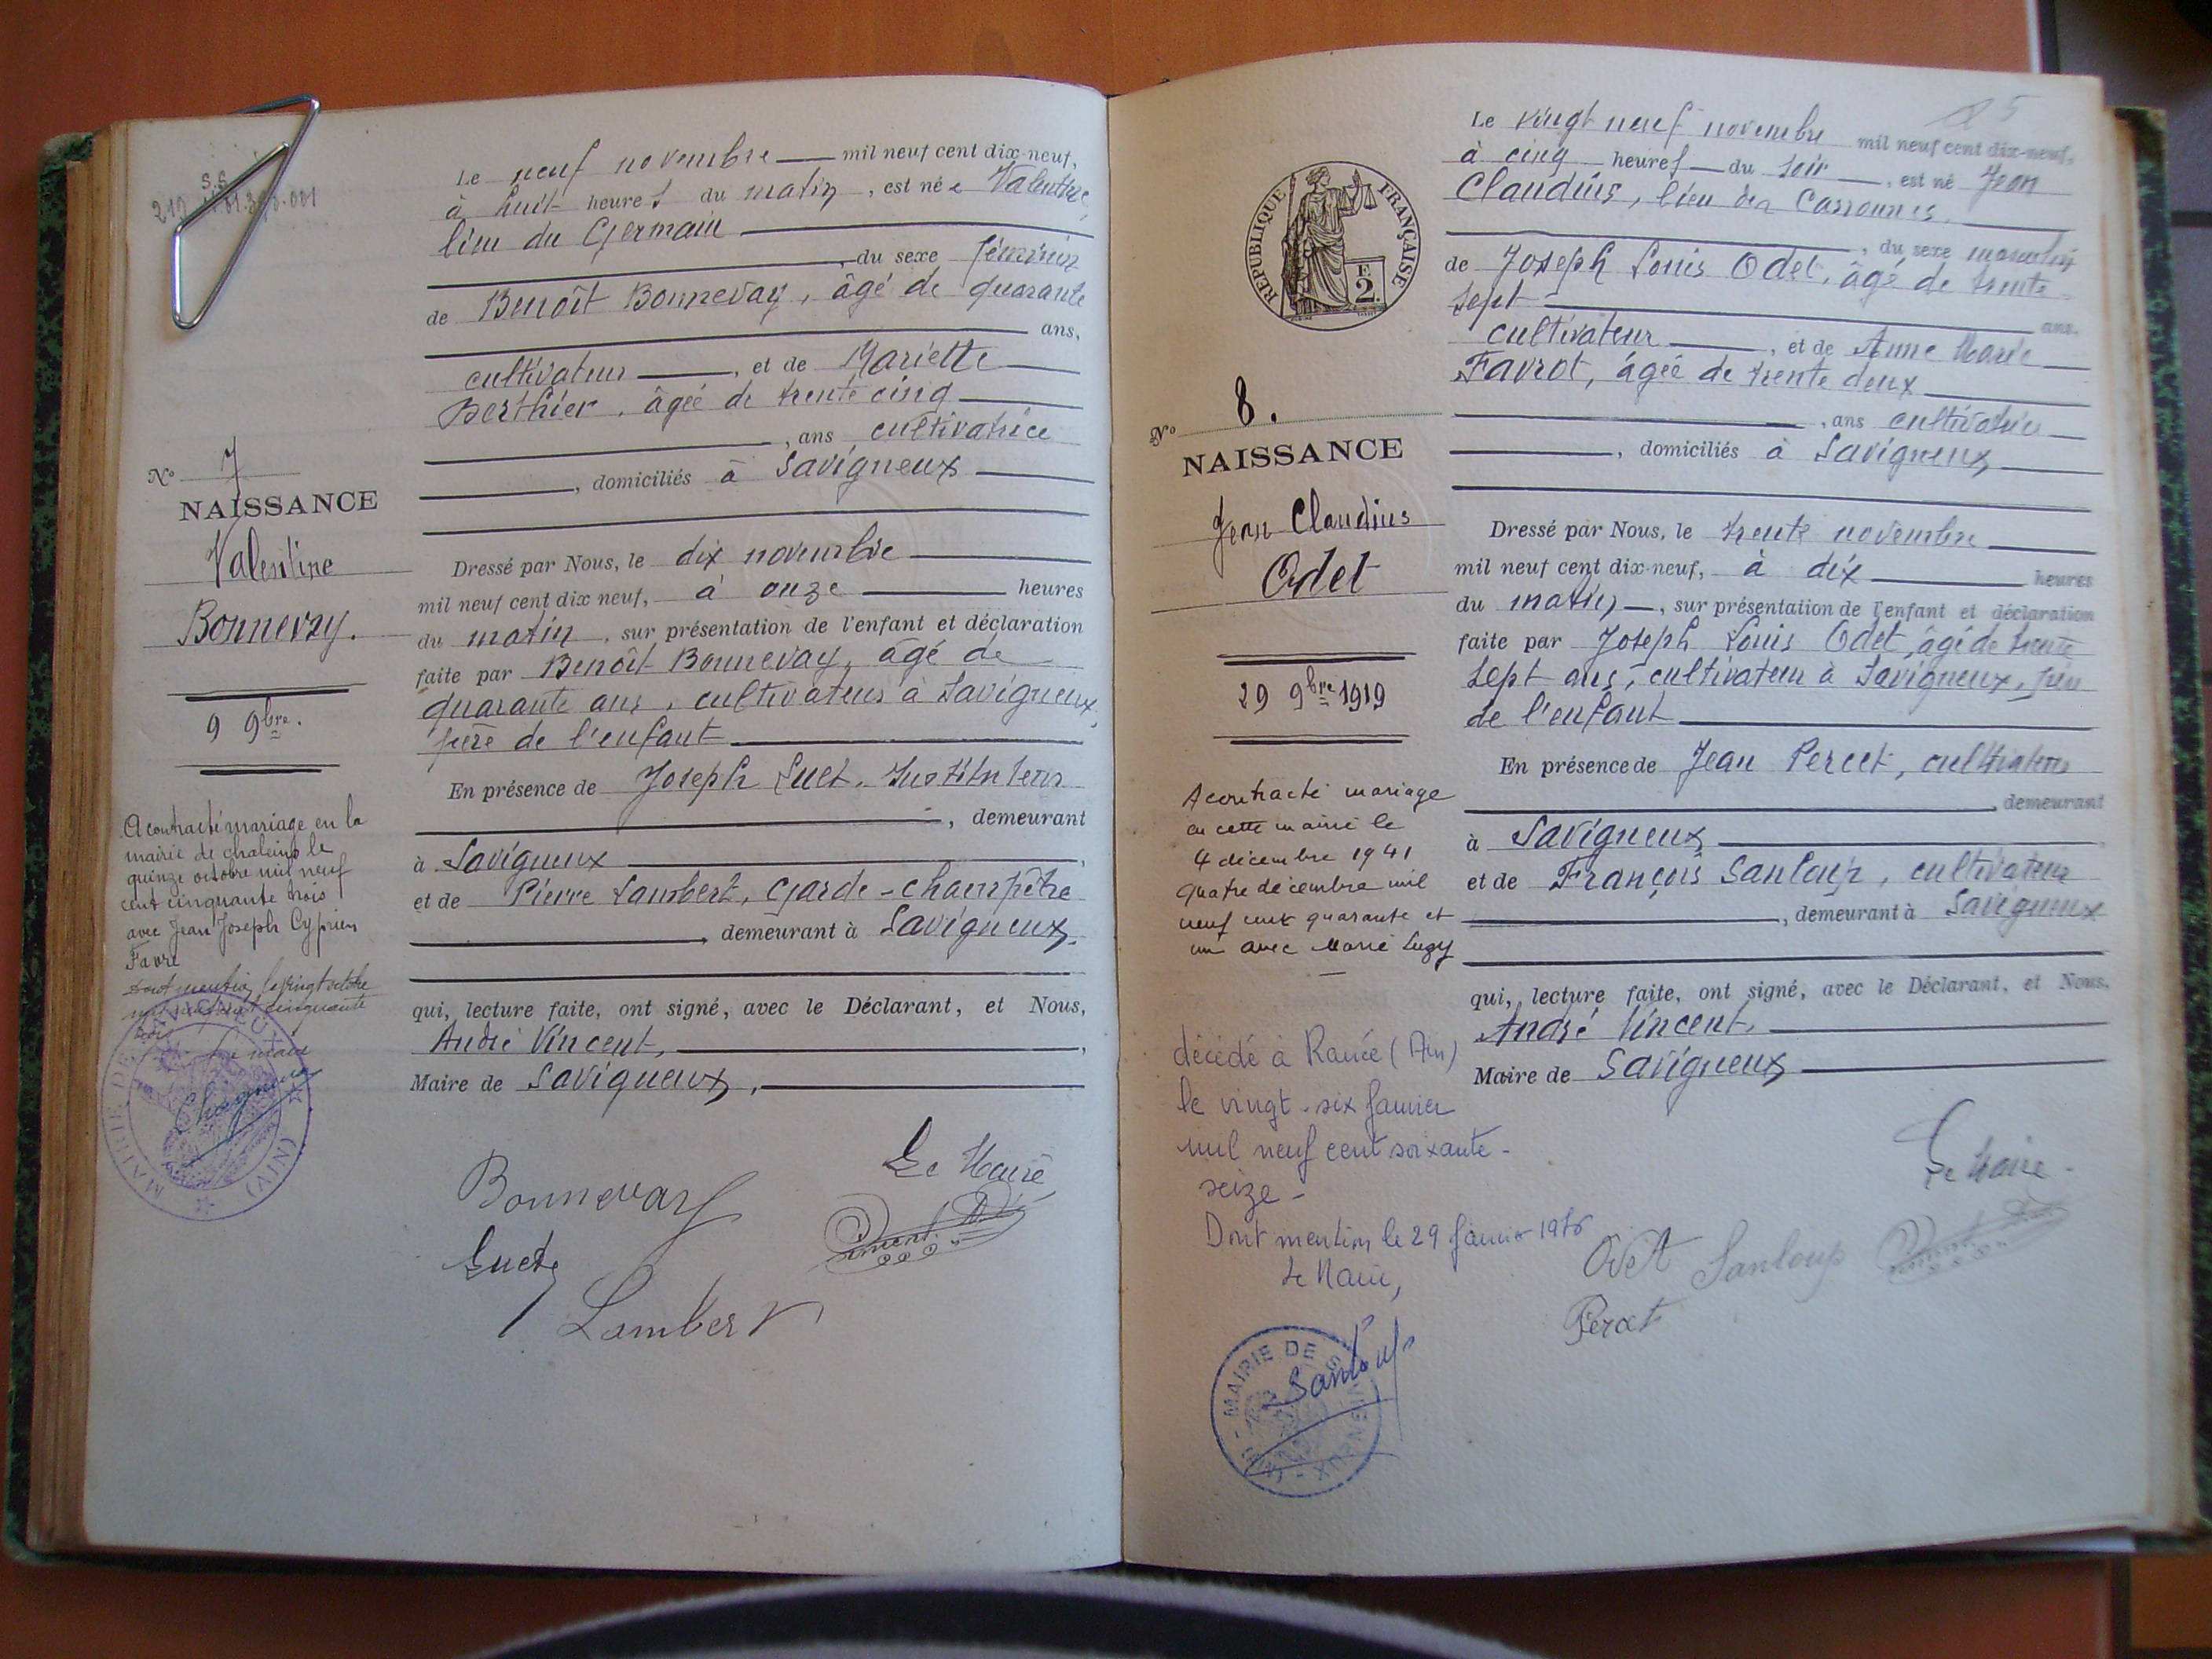 S.S.
N° 7
NAISSANCE
Valentine
Bonnevay.
9 9bre.
A contracté mariage en la
mairie de Chaleins le
quinze octobre mil neuf
cent cinquante trois
avec Jean Joseph Cyprien
Favre
Dont mention le vingt octobre
mil neuf cent cinquante
trois
Le maire
MAIRIE DE (AIN)
Le neuf novembre mil neuf cent dix-neuf,
à huit heures du matin, est née Valentine,
lieu du Germain
, du sexe féminin
de Benoît Bonnevay, âgé de quarante
ans,
cultivateur, et de Mariette
Berthier, âgée de trente cinq
, ans cultivatrice
, domiciliés à Savigneux
Dressé par Nous, le dix novembre
mil neuf cent dix neuf, à onze heures
du matin, sur présentation de l'enfant et déclaration
faite par Benoît Bonnevay, âgé de
quarante ans, cultivateur à Savigneux,
père de l'enfant
En présence de Joseph Luet, Instituteur
, demeurant
à Savigneux,
et de Pierre Lambert, Garde-champêtre
, demeurant à Savigneux.
qui, lecture faite, ont signé, avec le Déclarant, et Nous,
André Vincent,
Maire de Savigneux,
Bonnevay
Le Maire
Luet
Vincent
Lambert
RÉPUBLIQUE FRANÇAISE
2F
N° 8.
NAISSANCE
Jean Claudius
Odet
29 9bre 1919
A contracté mariage
en cette mairie le
4 décembre 1941
quatre décembre mil
neuf cent quarante et
un avec Marie Lugy
décédé à Rancé (Ain)
le vingt-six janvier
mil neuf cent soixante-
seize -
Dont mention le 29 janvier 1976
Le Maire,
MAIRIE DE SAVIGNEUX - (AIN) -
Sanloup
5
Le vingt neuf novembre mil neuf cent dix-neuf,
à cinq heures du soir, est né Jean
Claudius, lieu des
, du sexe masculin
de Joseph Louis Odet, âgé de trente-
sept ans,
cultivateur, et de Anne Marie
Favrot, âgée de trente deux
, ans cultivatrice
, domiciliés à Savigneux
Dressé par Nous, le trente novembre
mil neuf cent dix-neuf, à dix heures
du matin, sur présentation de l'enfant et déclaration
faite par Joseph Louis Odet, âgé de trente
sept ans, cultivateur à Savigneux, père
de l'enfant
En présence de Jean Percet, cultivateur
, demeurant
à Savigneux,
et de François Sanloup, cultivateur
, demeurant à Savigneux
qui, lecture faite, ont signé, avec le Déclarant, et Nous,
André Vincent,
Maire de Savigneux
Le Maire.
Odet Sanloup Vincent
Percet